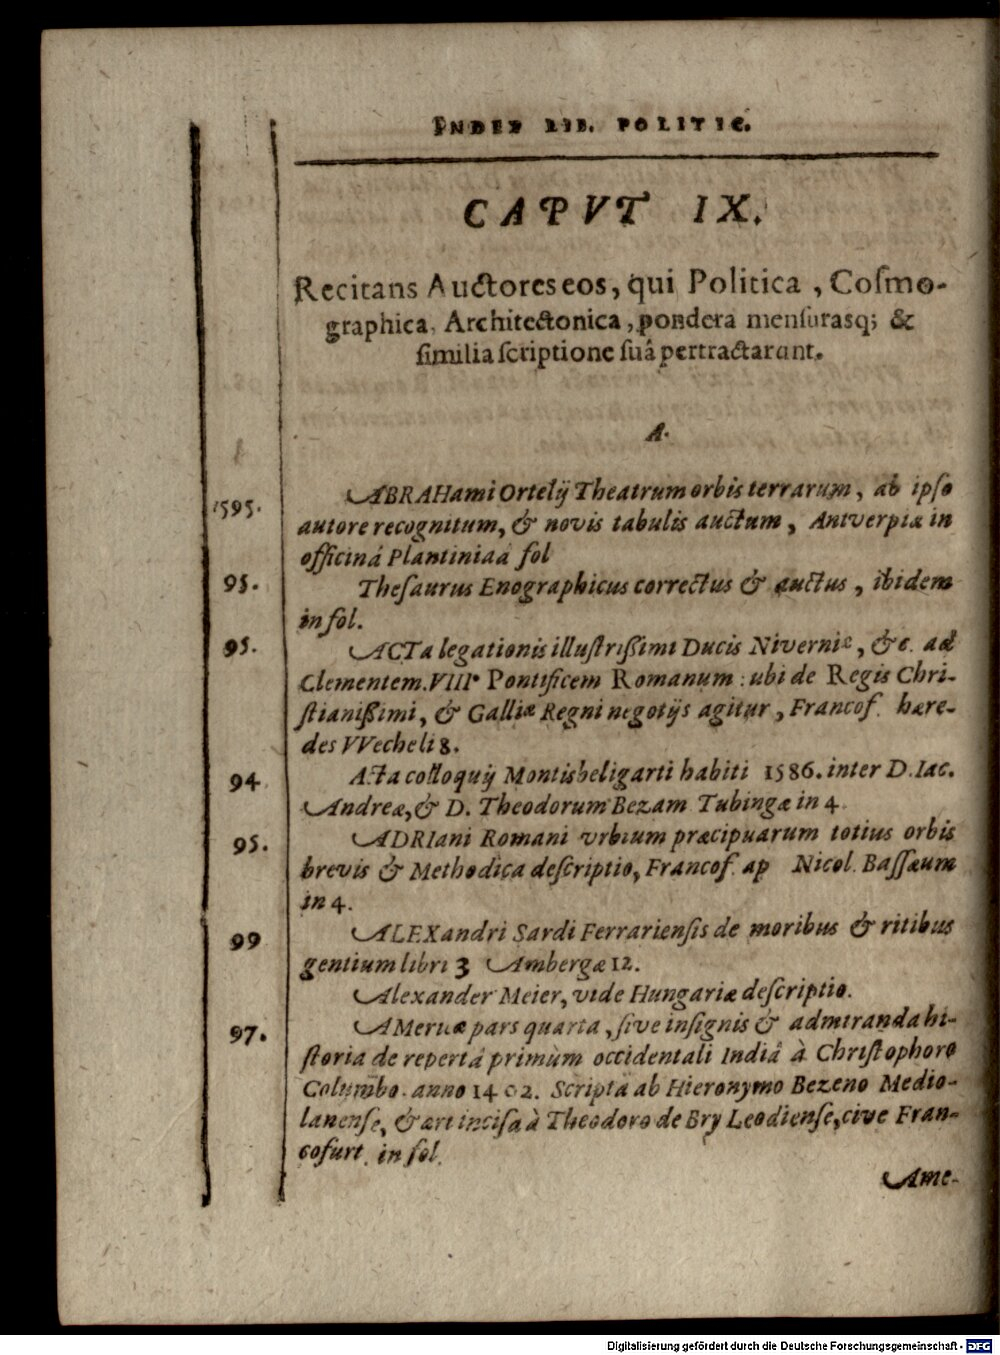 INDEX LIB. POLITIC.
CAPVT IX.
Recitans Auctores eos, qui Politica, Coſmo-
graphica, Architectonica, pondera menſurasq; &
ſimilia ſcriptione ſuâ pertractarunt.
A.
1595. ABRAHami Ortelij Theatrum orbis terrarum, ab ipſo
autore recognitum, & novis tabulis auctum, Antverpiæ in
officinâ Plantiniaâ fol
95. Theſaurus Enographicus correctus & auctus, ibidem
in fol.
95. ACTa legationis illuſtrißimi Ducis Niverniæ, &c. ad
Clementem. VIII. Pontificem Romanum: ubi de Regis Chri-
ſtianißimi, & Galliæ Regni negotijs agitur, Francof. hære-
des VVecheli 8.
94 Acta colloquij Montisbeligarti habiti 1586. inter D. Iac.
Andreæ, & D. Theodorum Bezam Tubingæ in 4
95. ADRIani Romani vrbium præcipuarum totius orbis
brevis & Methodica deſcriptio, Francof. ap Nicol. Baſſæum
in 4.
99 ALEXandri Sardi Ferrarienſis de moribus & ritibus
gentium libri 3 Ambergæ 12.
Alexander Meier, vide Hungariæ deſcriptio.
97. AMericæ pars quarta, ſive inſignis & admiranda hi-
ſtoria de repertâ primùm occidentali Indiâ à Chriſtophoro
Columbo. anno 1402. Scripta ab Hieronymo Bezeno Medio-
lanenſe, & ært inciſa à Theodoro de Bry Leodienſe, cive Fran-
cofurt. in fol.
Ame-
Digitalisierung gefördert durch die Deutsche Forschungsgemeinschaft - DFG